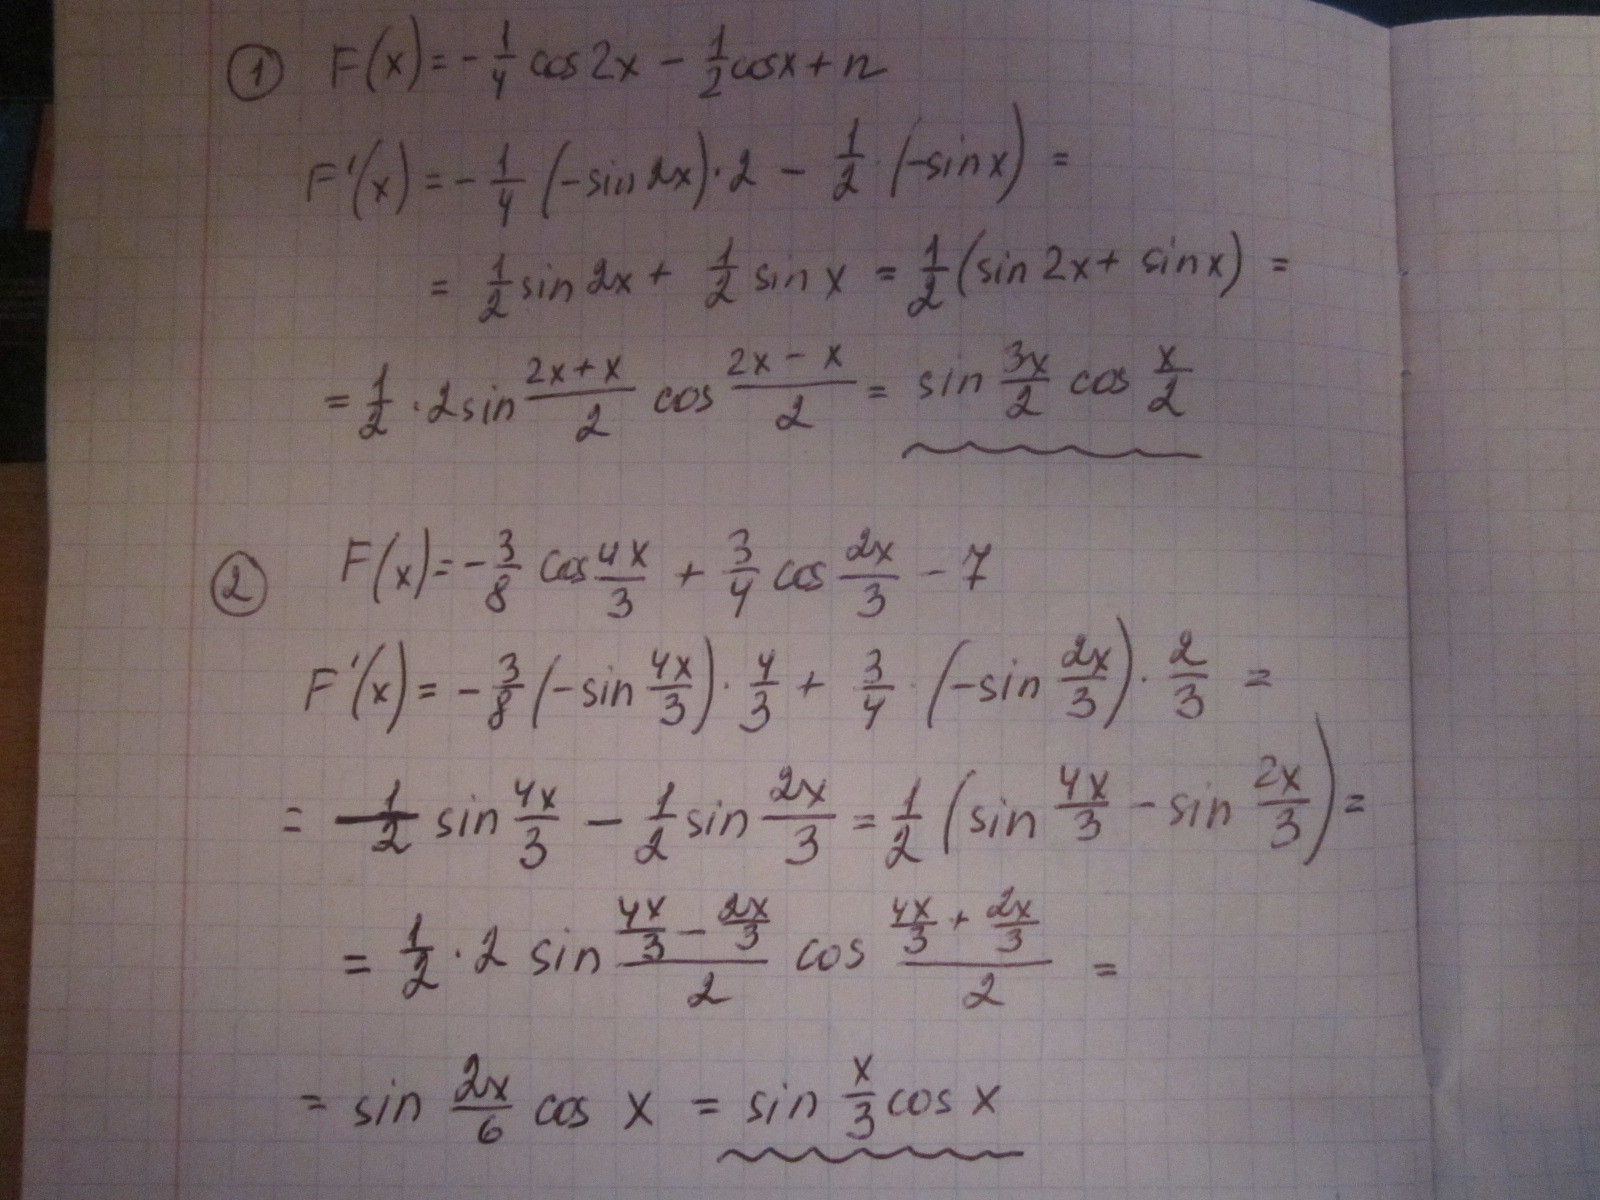 ① F(x) = -1/4 cos 2x - 1/2 cos x + n
F'(x) = -1/4 (-sin 2x)·2 - 1/2·(-sin x) =
= 1/2 sin 2x + 1/2 sin x = 1/2 (sin 2x + sin x) =
= 1/2 · 2 sin (2x + x)/2 cos (2x - x)/2 = sin 3x/2 cos x/2
② F(x) = -3/8 cos 4x/3 + 3/4 cos 2x/3 - 7
F'(x) = -3/8 (-sin 4x/3)·4/3 + 3/4·(-sin 2x/3)·2/3 =
= 1/2 sin 4x/3 - 1/2 sin 2x/3 = 1/2 (sin 4x/3 - sin 2x/3) =
= 1/2 · 2 sin (4x/3 - 2x/3)/2 cos (4x/3 + 2x/3)/2 =
= sin 2x/6 cos x = sin x/3 cos x